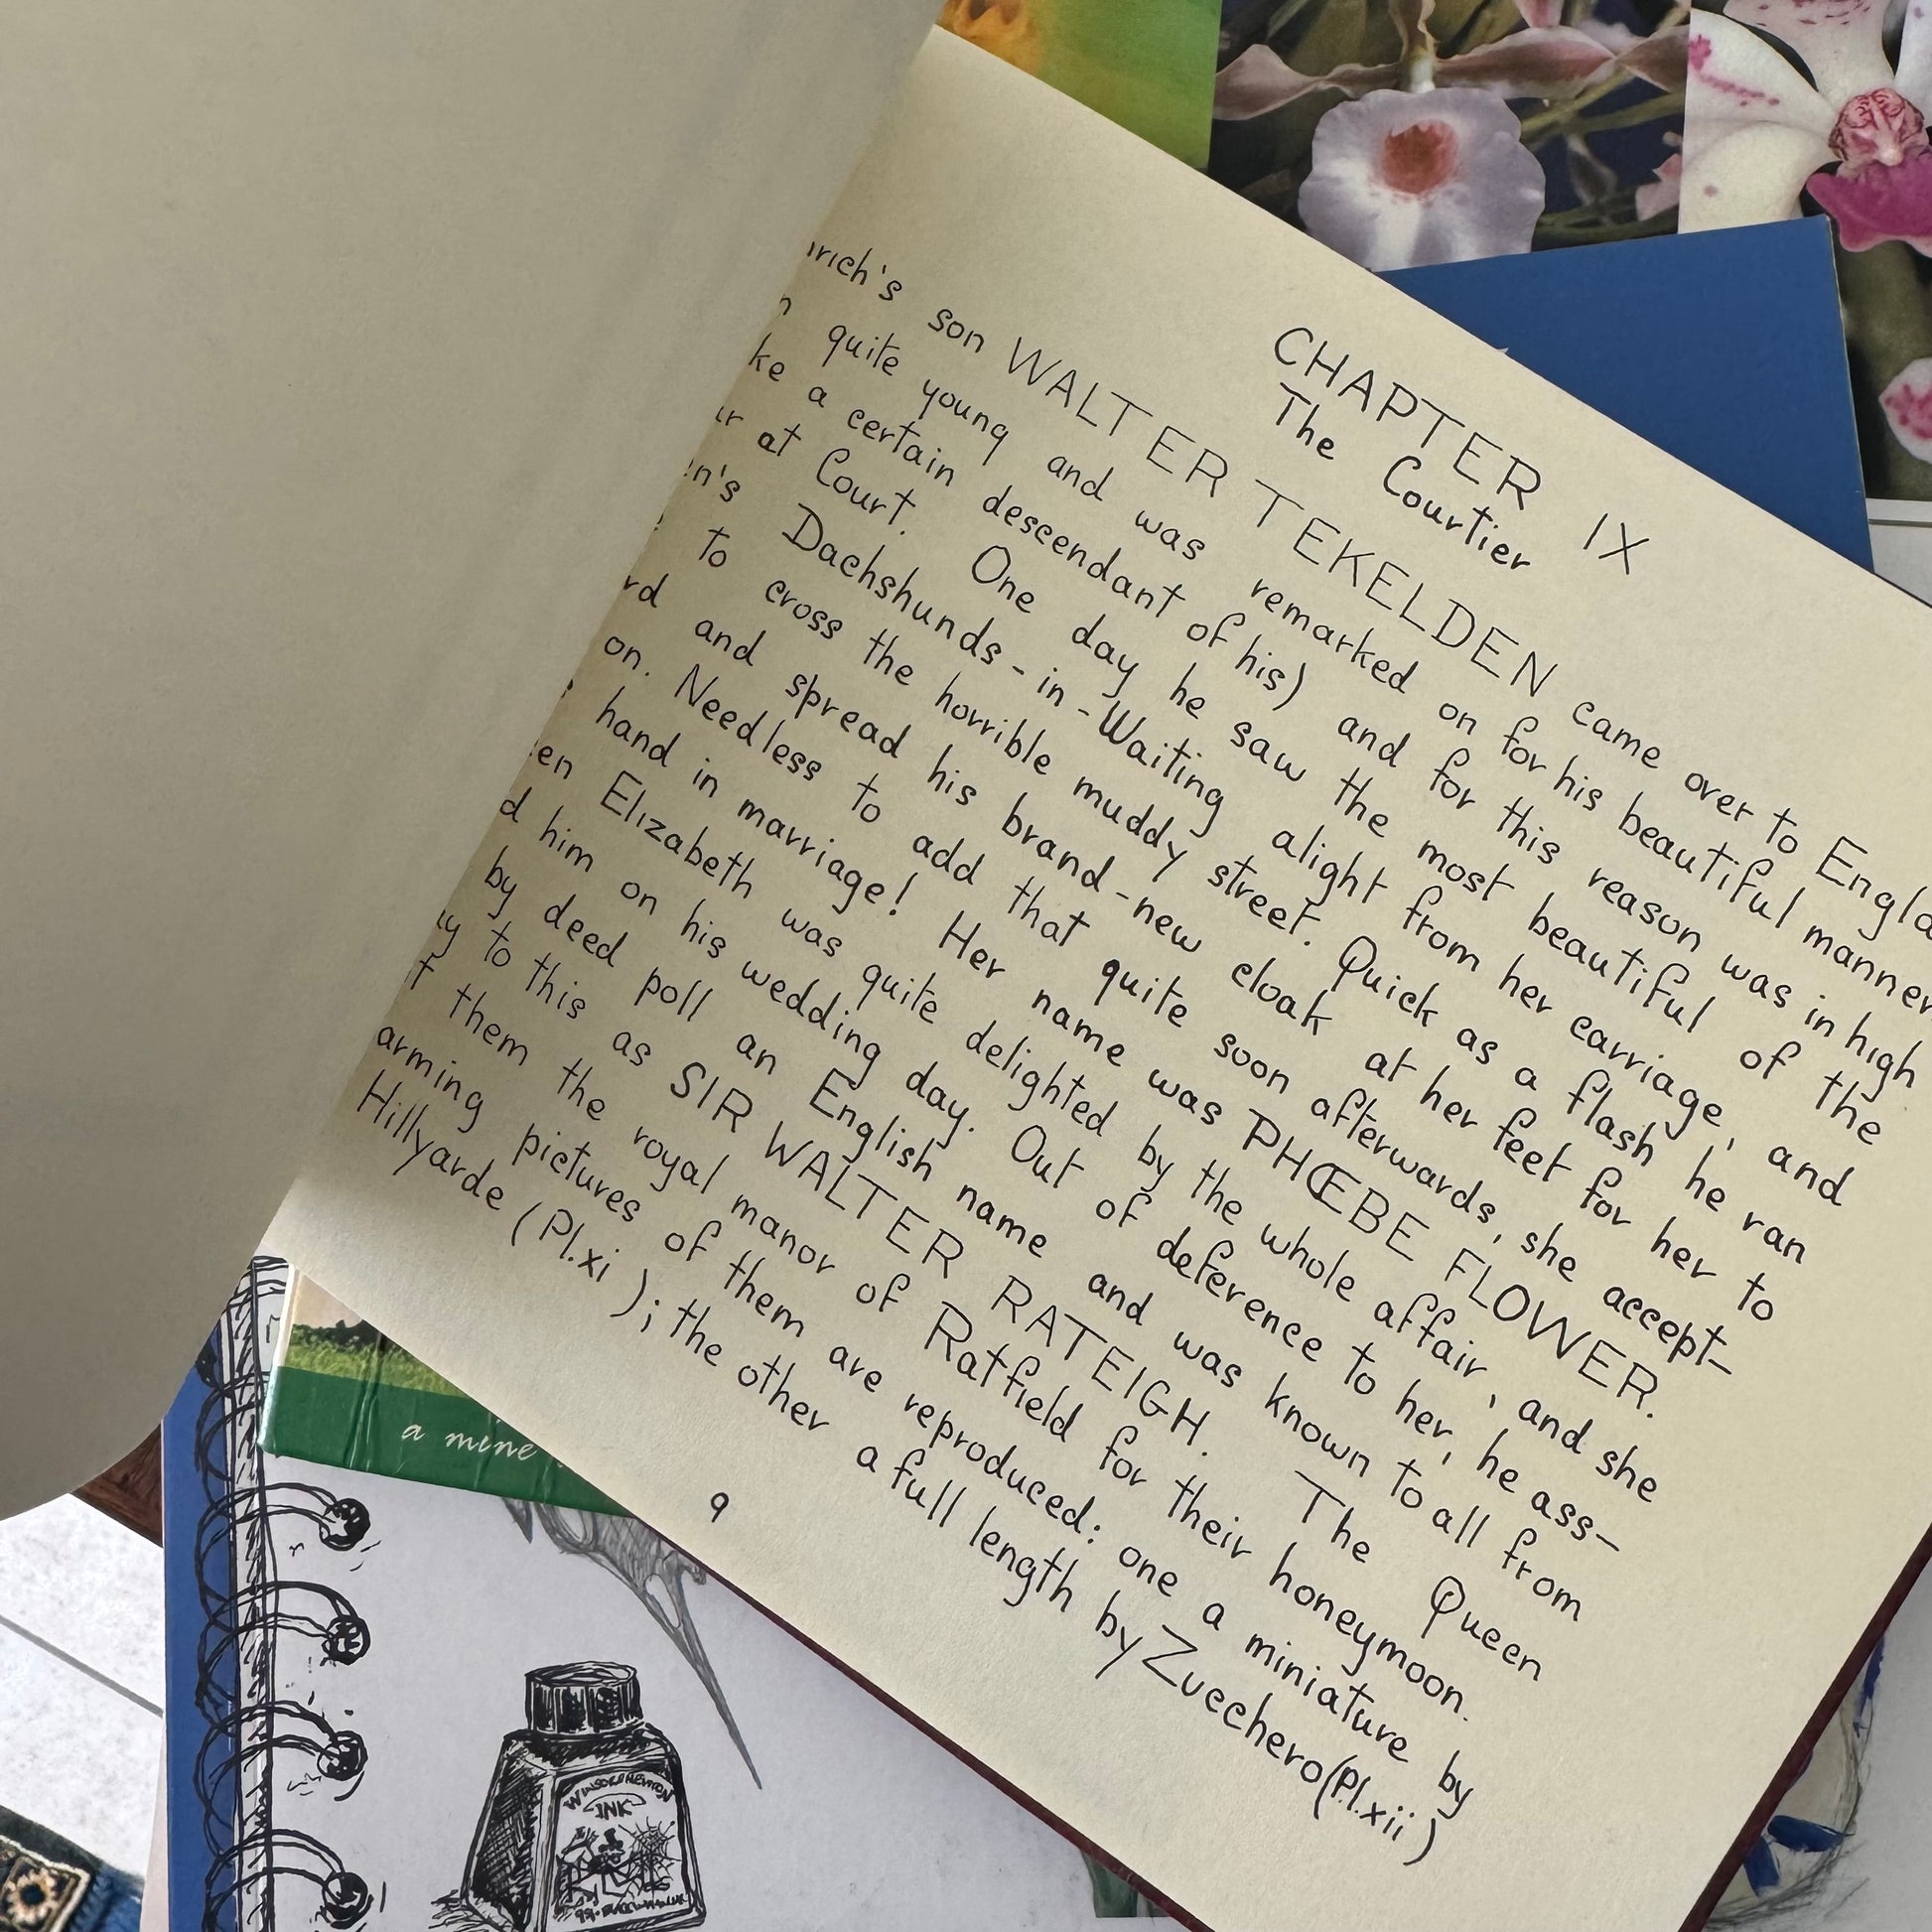 CHAPTER IX
The Courtier
rich's son WALTER TEKELDEN came over to Engla
n quite young and was remarked on for his beautiful manner
ke a certain descendant of his) and for this reason was in high
ur at Court. One day he saw the most beautiful of the
en's Dachshunds-in-Waiting alight from her carriage, and
to cross the horrible muddy street. Quick as a flash he ran
rd and spread his brand-new cloak at her feet for her to
on. Needless to add that quite soon afterwards, she accept-
hand in marriage! Her name was PHŒBE FLOWER.
en Elizabeth was quite delighted by the whole affair, and she
d him on his wedding day. Out of deference to her, he ass-
by deed poll an English name and was known to all from
y to this as SIR WALTER RATEIGH. The Queen
t them the royal manor of Ratfield for their honeymoon.
arming pictures of them are reproduced: one a miniature by
Hillyarde (Pl.xi); the other a full length by Zucchero (Pl.xii)
9
a mine
WINSOR & NEWTON
INK